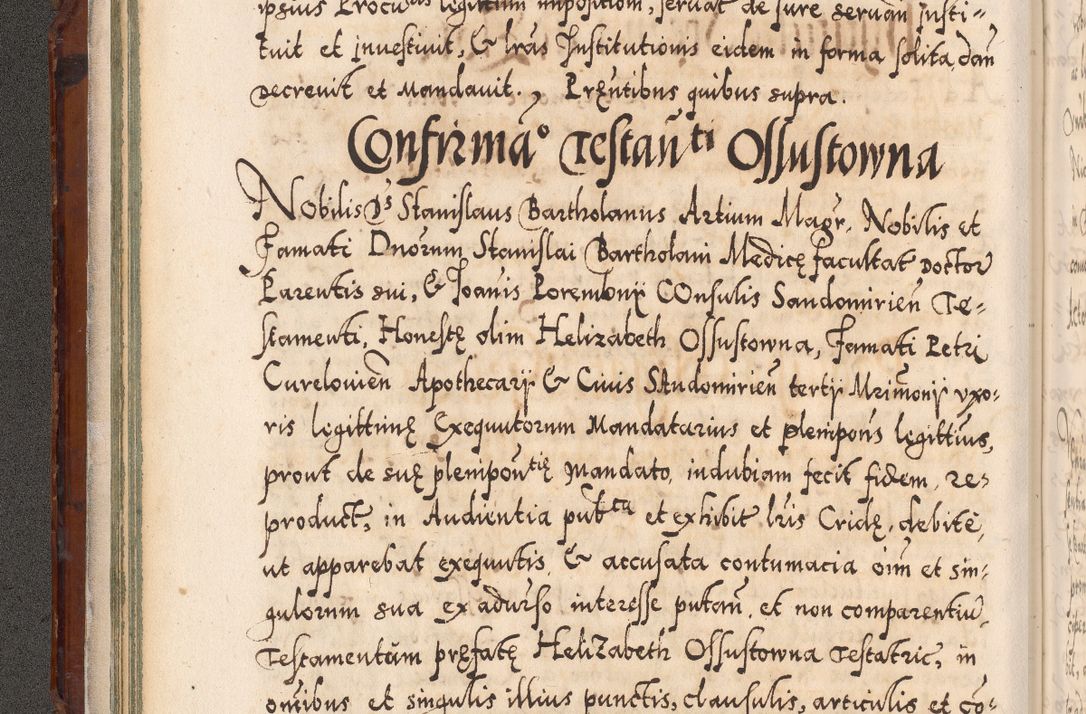 ipsius Procu^ris legittim impositiom, servat de jure servan justi=
tuit et jnvestivit, & lras Institutionis eidem in forma solita, dan
Decrevit et Mandavit., Pręntibus quibus supra.
Confirmaō Testan^ti Ossustowna
Nobilis Ds Stanislaus Bartholanus Artium Magr, Nobilis et
Famati Dnorum Stanislai Bartholani Medicę facultat Doctor
Parentis sui, & Joanis Porembny Consulis Sandomirien Te=
stamenti, Honestę olim Helizabeth Ossustowna, Famati Petri
Curelovien Apothecarij & Civis SAndomirien tertij Mrimonij vxo=
ris legittimę Exequutorum Mandatarius et plenipons legittius,
prout de suę plenipon^tię Mandato, indubiam fecit fidem, re=
product, in Audientia pub^ca et exhibit lris Cridę, debitè,
ut apparebat exequutis, & accusata contumacia oim et sin=
gulorum sua ex adurso interesse putan, et non comparentiu,
Testamentùm pręfatę Helizabeth Ossustowna Testatric, in
omibus et singulis illius punctis, clausulis, articulis et co=